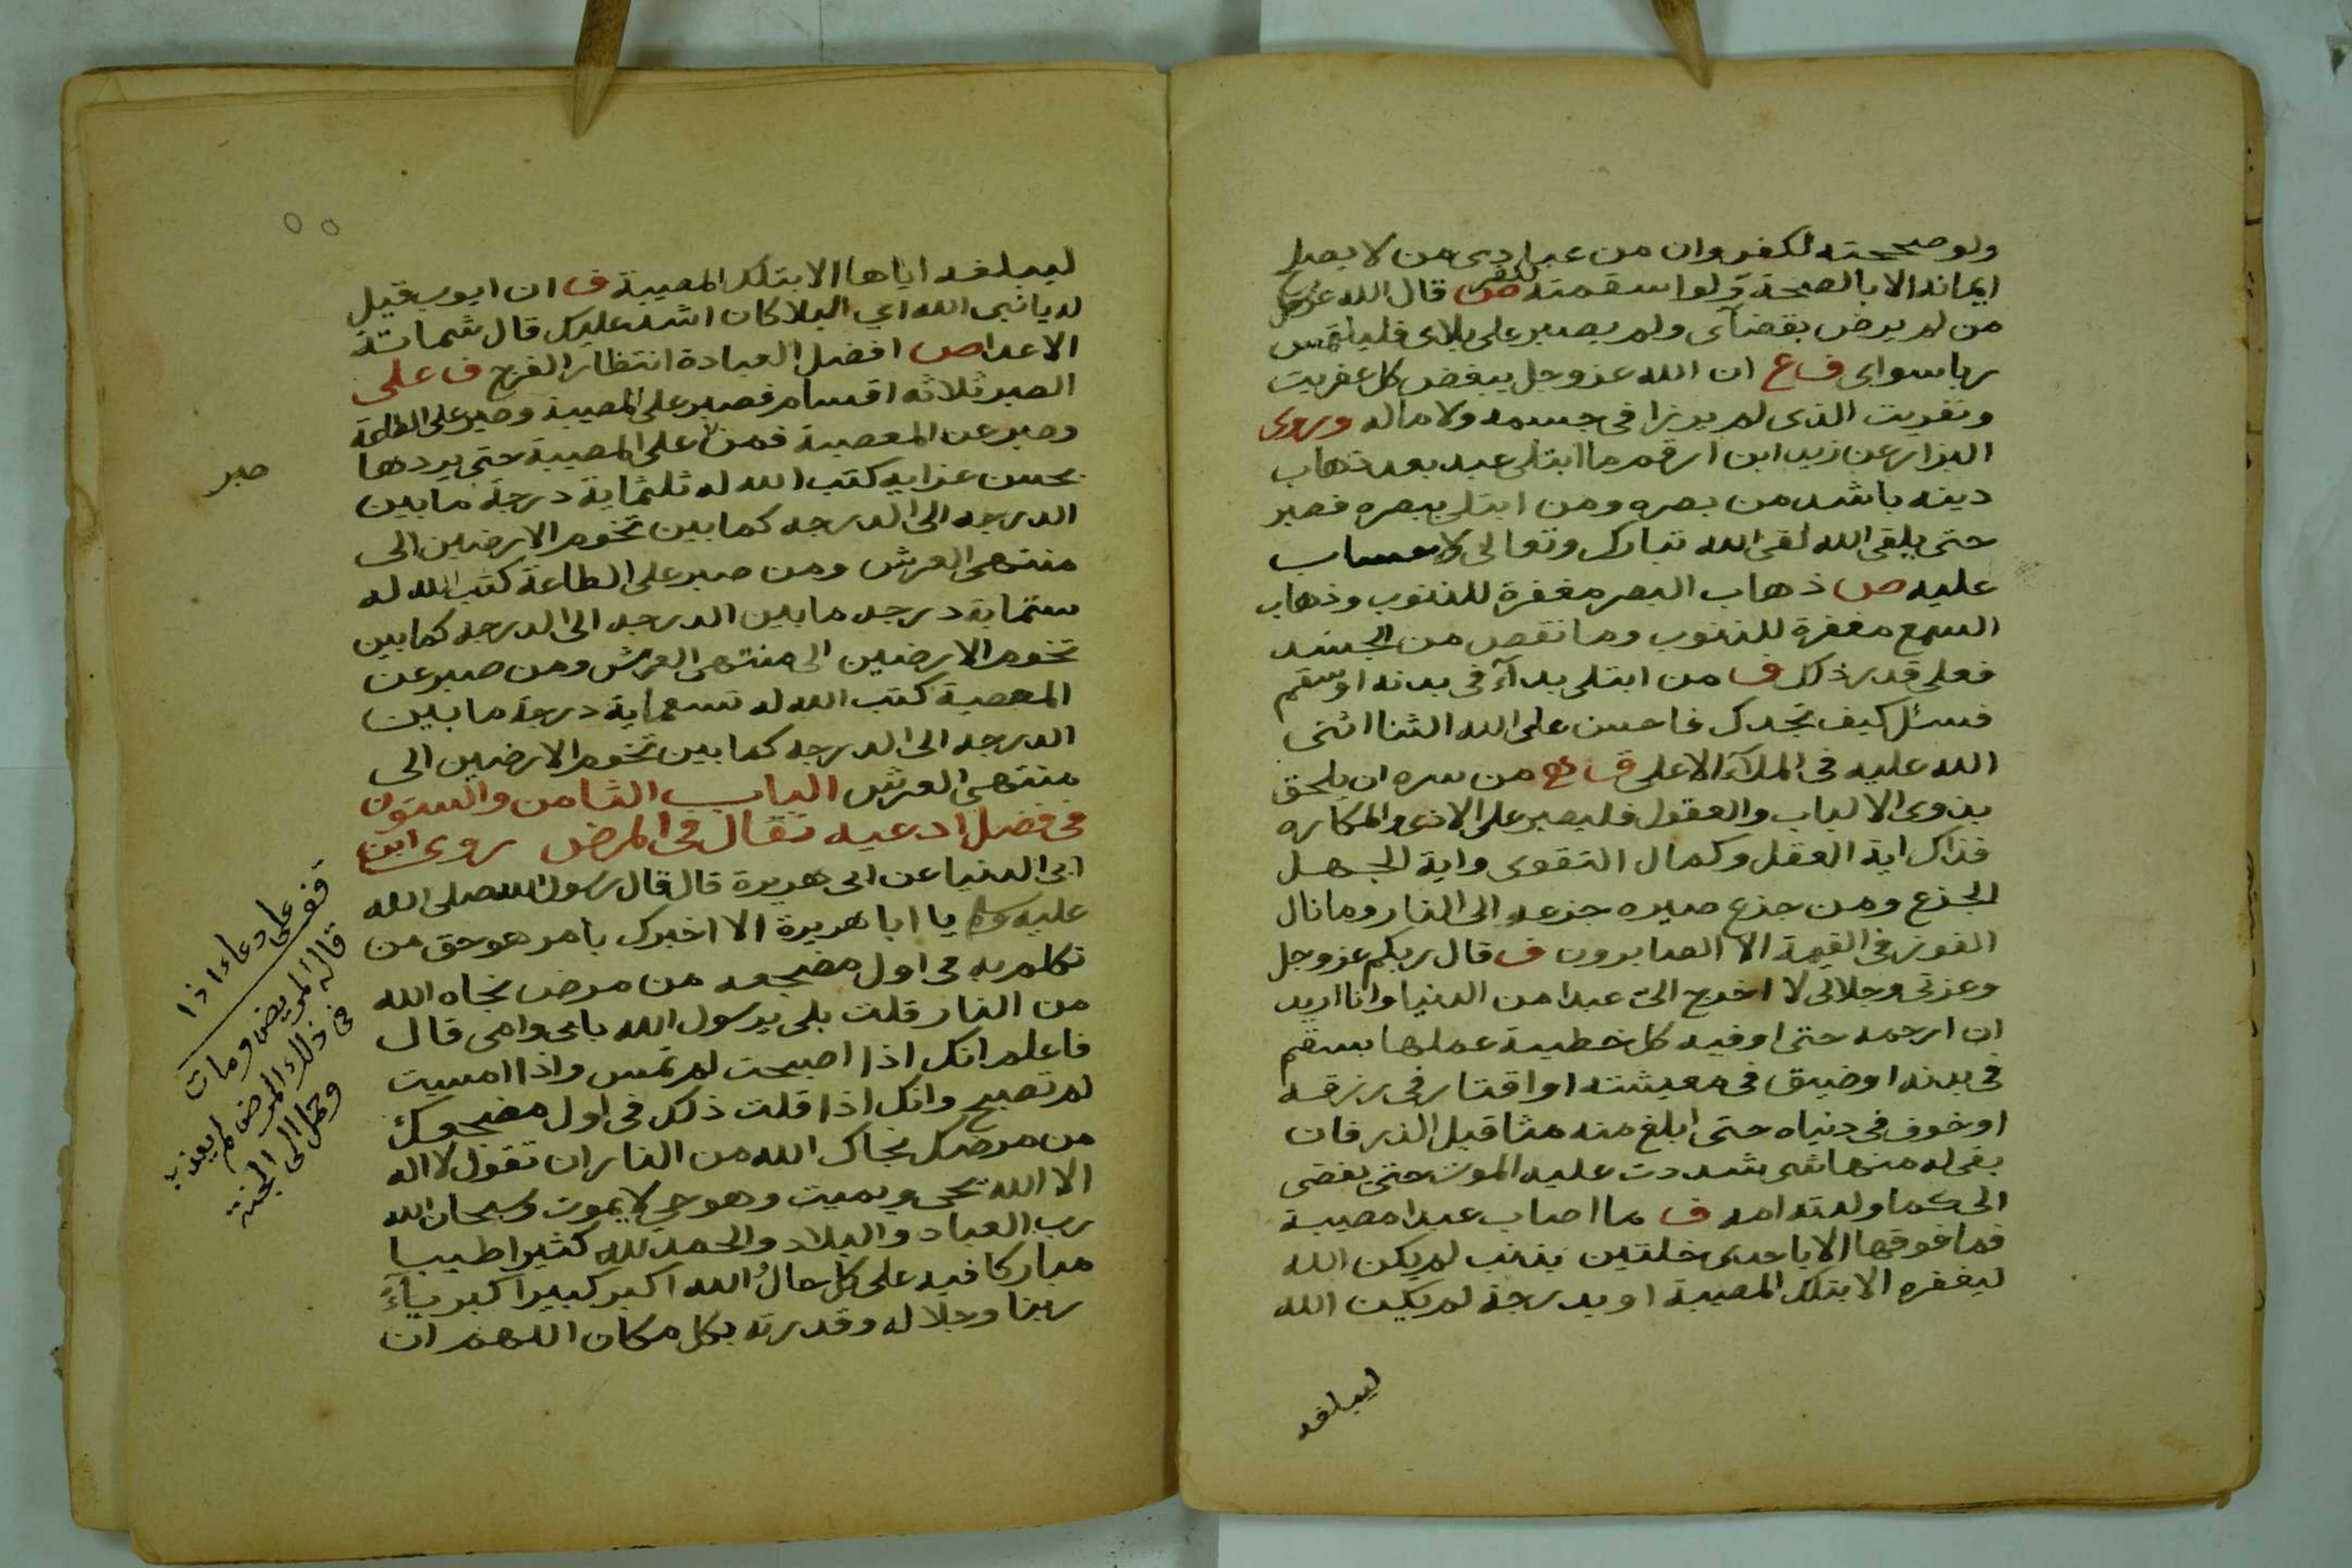 ولو صححته لكفر وان من عبادى من لا يصلح
ايمانه الا بالصحة ولو اسقمته لكفر ص قال الله عز وجل
من لم يرض بقضآى ولم يصبر على بلاى فليلتمس
ربا سواى ف ع ان الله عز وجل يبغض كل عفريت
ونفريت الذى لم يرزا فى جسمه ولا ماله وروى
البزار عن زيد ابن ارقم ما ابتلى عبد بعد ذهاب
دينه باشد من بصره ومن ابتلى ببصره فصبر
حتى يلقى الله لقى الله تبارك وتعالى ولا حساب
عليه ص ذهاب البصر مغفرة للذنوب وذهاب
السمع مغفرة للذنوب وما نقص من الجسد
فعلى قدر ذلك ف من ابتلى بدآء فى بدنه او سقم
فسئل كيف تجدك فاحسن على الله الثنا اثنى
الله عليه فى الملآء الاعلى ف من سره ان يلحق
بذوى الالباب والعقول فليصبر على الاذى والمكاره
فذاك اية العقل وكمال التقوى واية الجهل
الجزع ومن جزع صيره جزعه الى النار وما نال
الفوز فى القيمة الا الصابرون ف قال ربكم عز وجل
وعزتى وجلالى لا اخرج الى عبدا من الدنيا وانا اريد
ان ارحمه حتى اوفيه كل خطيئة عملها بسقم
فى بدنه او ضيق فى معيشته او اقتار فى رزقه
او خوف فى دنياه حتى ابلغ منه مثاقيل الذر فان
بقى له منها شى شددت عليه الموت حتى يفضى
الى كما ولدته امه ف ما اصاب عبدا مصيبة
فما فوقها الا باحدى خلتين بذنب لم يكن الله
ليغفره الا بتلك المصيبة او بدرجة لم يكن الله
ليبلغه
ليبلغه اياها الا بتلك المصيبة ف ان ايوب قيل
له يا نبى الله اى البلا كان اشد عليك قال شماتة
الاعدا ص افضل العبادة انتظار الفرج ف على
الصبر ثلاثه اقسام فصبر على المصيبة وصبر على الطاعة
وصبر عن المعصية فمن على المصيبة حتى يردها
صبر
بحسن عزايه كتب الله له ثلثماية درجة ما بين
الدرجه الى الدرجه كما بين تخوم الارضين الى
منتهى العرش ومن صبر على الطاعة كتب الله له
ستماية درجه ما بين الدرجه الى الدرجه كما بين
تخوم الارضين الى منتهى العرش ومن صبر عن
المعصية كتب الله له تسعماية درجة ما بين
الدرجه الى الدرجه كما بين تخوم الارضين الى
منتهى العرش الباب الثامن والستون
فى فضل ادعيه تقال فى المرض روى ابن
ابى الدنيا عن ابى هريرة قال قال رسول الله صلى الله
عليه وسلم يا ابا هريرة الا اخبرك بامر هو حق من
تكلم به فى اول مضجعه من مرض نجاه الله
من النار قلت بلى يرسول الله بابى وامى قال
فاعلم انك اذا اصبحت لم تمس واذا امسيت
لم تصبح وانك اذا قلت ذلك فى اول مضجعك
من مرضك نجاك الله من النار ان تقول لا اله
الا الله يحى ويميت وهو حى لا يموت وسبحان الله
رب العباد والبلاد والحمد لله كثيرا طيبا
مباركا فيه على كل حال الله اكبر كبيرا كبريآء
ربنا وجلاله وقدرته بكل مكان اللهم ان
قف
على دعاء اذا
قاله المريض ومات
فى ذلك المرض لم يعذب
وحمل الى الجنة